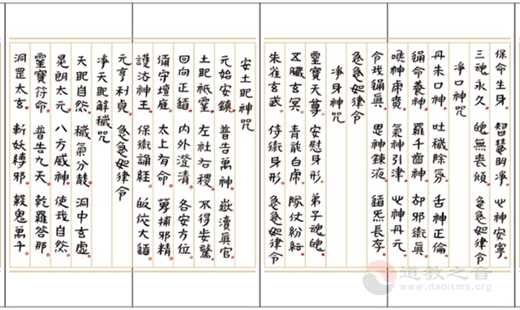 保命生身 智慧明淨 心神安寧
三魂永久 魄無喪傾 急急如律令
淨口神咒
丹朱口神 吐穢除氛 舌神正倫
通命養神 羅千齒神 却邪衛真
喉神虎賁 氣神引津 心神丹元
令我通真 思神鍊液 道炁長存
急急如律令
淨身神咒
靈寶天尊 安慰身形 弟子魂魄
五臟玄冥 青龍白虎 隊仗紛紜
朱雀玄武 侍衛身形 急急如律令
安土地神咒
元始安鎮 普告萬神 嶽瀆真官
土地祇靈 左社右稷 不得妄驚
回向正道 內外澄清 各安方位
備守壇庭 太上有命 蒐捕邪精
護法神王 保衛誦經 皈依大道
元亨利貞 急急如律令
淨天地解穢咒
天地自然 穢氣分散 洞中玄虛
晃朗太元 八方威神 使我自然
靈寶符命 普告九天 乾羅答那
洞罡太玄 斬妖縛邪 殺鬼萬千
道教之音
www.daoisms.org